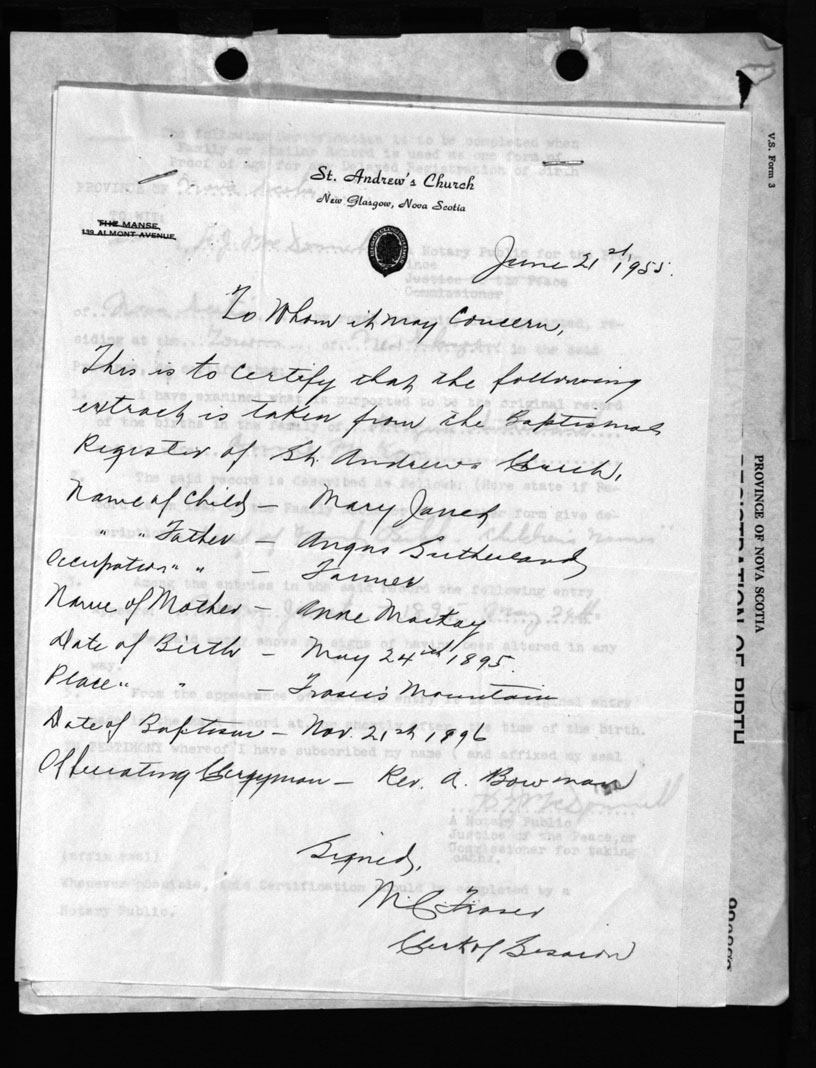 St. Andrew's Church
New Glasgow, Nova Scotia
THE MANSE,
139 ALMONT AVENUE,
June 21st, 1955.
To Whom it may Concern,
This is to certify that the following
extract is taken from the Baptismal
Register of St. Andrews Church.
Name of Child – Mary Janet
" " Father – Angus Sutherland
Occupation " " – Farmer
Name of Mother – Anne MacKay
Date of Birth – May 24th 1895.
Place " " – Frasers Mountain
Date of Baptism – Nov. 21st 1896
Officiating Clergyman – Rev. A. Bowman
Signed,
Fraser
Clerk of Session
V.S. Form 3
PROVINCE OF NOVA SCOTIA
REGISTRATION OF BIRTH
The following Certification is to be completed when
Family or similar Record is used as one form of
Proof of Age for any Delayed Registration of Birth
PROVINCE OF Nova Scotia
TO WIT:
a Notary Public for the
Justice of the Peace
Commissioner
siding at the Town of New Glasgow in the said
I have examined what is purported to be the original record
of the births in the family of
The said record is described as follows: (Here state if
Among the entries in the said record the following entry
1895 May 24th
signs of having been altered in any
way.
From the appearance
the time of the birth.
TESTIMONY whereof I have subscribed my name (and affixed my seal
A Notary Public
Justice of the Peace, or
Commissioner for taking
oaths.
(affix seal)
Whenever possible, this Certification should be completed by a
Notary Public.